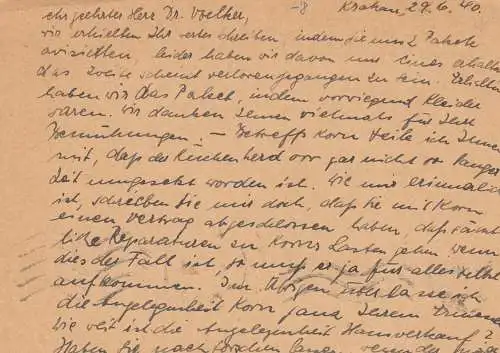 Krakau, 29.6.40.
sehr geehrter Herr Dr. Voelker,
wir erhielten Ihr erstes Schreiben, indem Sie uns 2 Pakete
avisierten, leider haben wir davon nur eines erhalten
das zweite scheint verlorengegangen zu sein. Erhalten
haben wir das Paket, indem vorwiegend Kleider
waren. Wir danken Ihnen vielmals für Ihre
Bemühungen. – Betreffs Korn teile ich Ihnen
mit, daß der Küchenherd vor gar nicht so langer
Zeit umgesetzt worden ist. Wie mir erinnerlich
ist, schrieben Sie mir doch, daß Sie mit Korn
einen Vertrag abgeschlossen haben, daß sämt-
liche Reparaturen zu Korns Lasten gehen. Wenn
dies der Fall ist, so muß er ja für alles selbst
aufkommen. Im Übrigen überlasse ich
die Angelegenheit Korn ganz Ihrem
Wie weit ist die Angelegenheit Hausverkauf?
Haben Sie noch